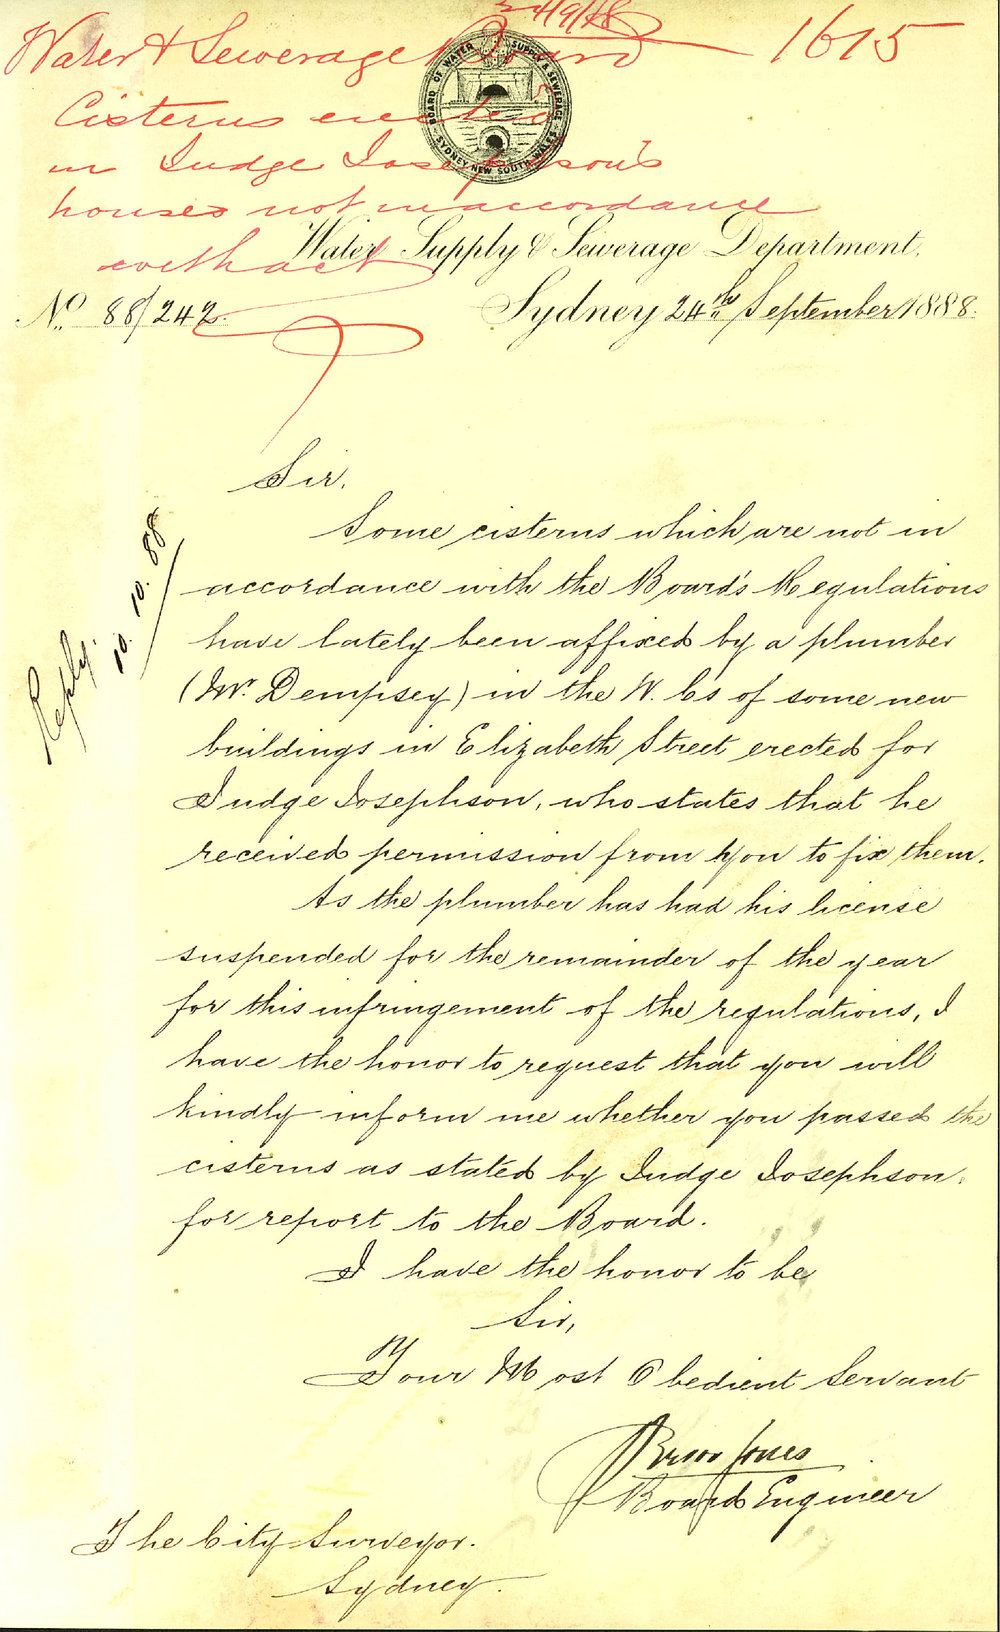 24/9/88
Water & Sewerage Board 1615
Cisterns erected
in Judge Josephson's
houses not in accordance
with act
BOARD OF WATER SUPPLY & SEWERAGE
SYDNEY NEW SOUTH WALES
Water Supply & Sewerage Department.
No. 88/242. Sydney 24th September 1888.
Sir,
Some cisterns which are not in
accordance with the Board's Regulations
have lately been affixed by a plumber
(Mr. Dempsey) in the W. Cs of some new
buildings in Elizabeth Street erected for
Judge Josephson, who states that he
received permission from you to fix them.
As the plumber has had his license
suspended for the remainder of the year
for this infringement of the regulations, I
have the honor to request that you will
kindly inform me whether you passed the
cisterns as stated by Judge Josephson.
for report to the Board.
Reply. 10.10.88
I have the honor to be
Sir,
Your Most Obedient Servant
Jones
Board Engineer
The City Surveyor.
Sydney.